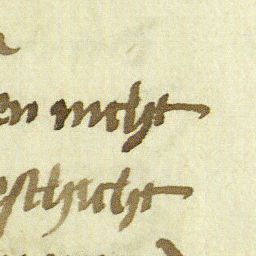 en nicht
eschicht